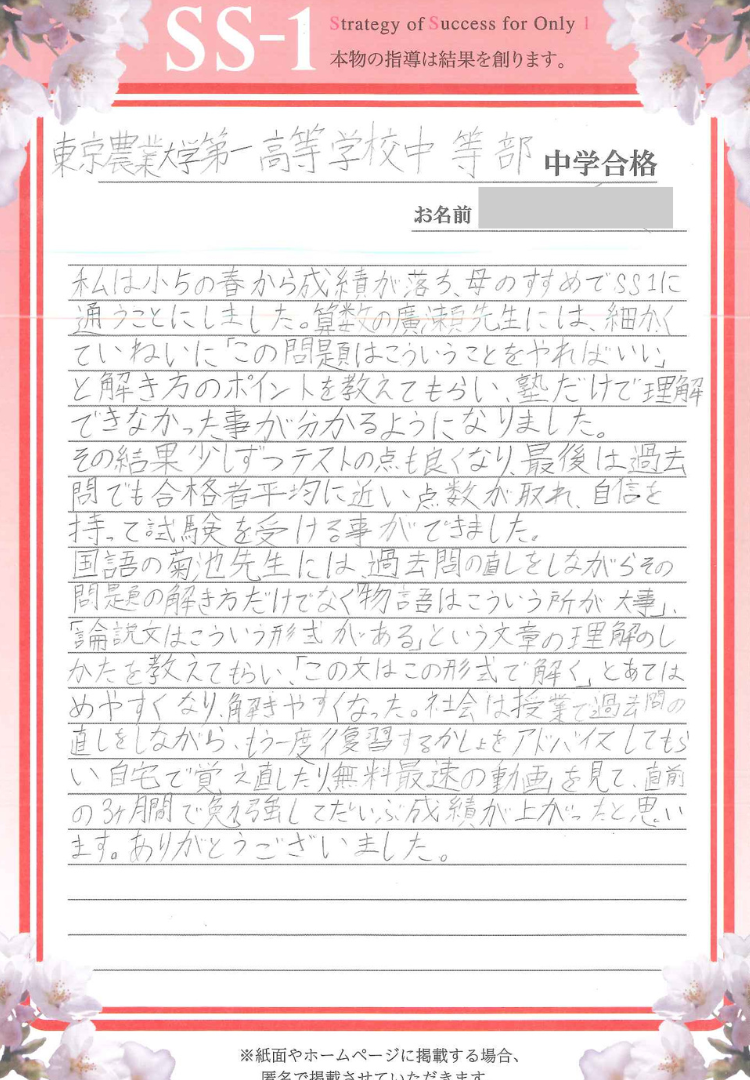 SS-1 Strategy of Success for Only 1
本物の指導は結果を創ります。
東京農業大学第一高等学校中等部 中学合格
お名前
私は小5の春から成績が落ち、母のすすめでSS1に
通うことにしました。算数の廣瀬先生には、細かく
ていねいに「この問題はこういうことをやればいい」
と解き方のポイントを教えてもらい、塾だけで理解
できなかった事が分かるようになりました。
その結果少しずつテストの点も良くなり、最後は過去
問でも合格者平均に近い点数が取れ、自信を
持って試験を受ける事ができました。
国語の菊池先生には、過去問の直しをしながらその
問題の解き方だけでなく「物語はこういう所が大事」、
「論説文はこういう形式がある」という文章の理解のし
かたを教えてもらい、「この文はこの形式で解く」とあては
めやすくなり、解きやすくなった。社会は授業で過去問の
直しをしながら、もう一度復習するかしょをアドバイスしてもら
い自宅で覚え直したり、「無料最速の動画」を見て、直前
の3ヶ月間で勉強してだいぶ成績が上がったと思い
ます。ありがとうございました。
※紙面やホームページに掲載する場合、
匿名で掲載させていただきます。